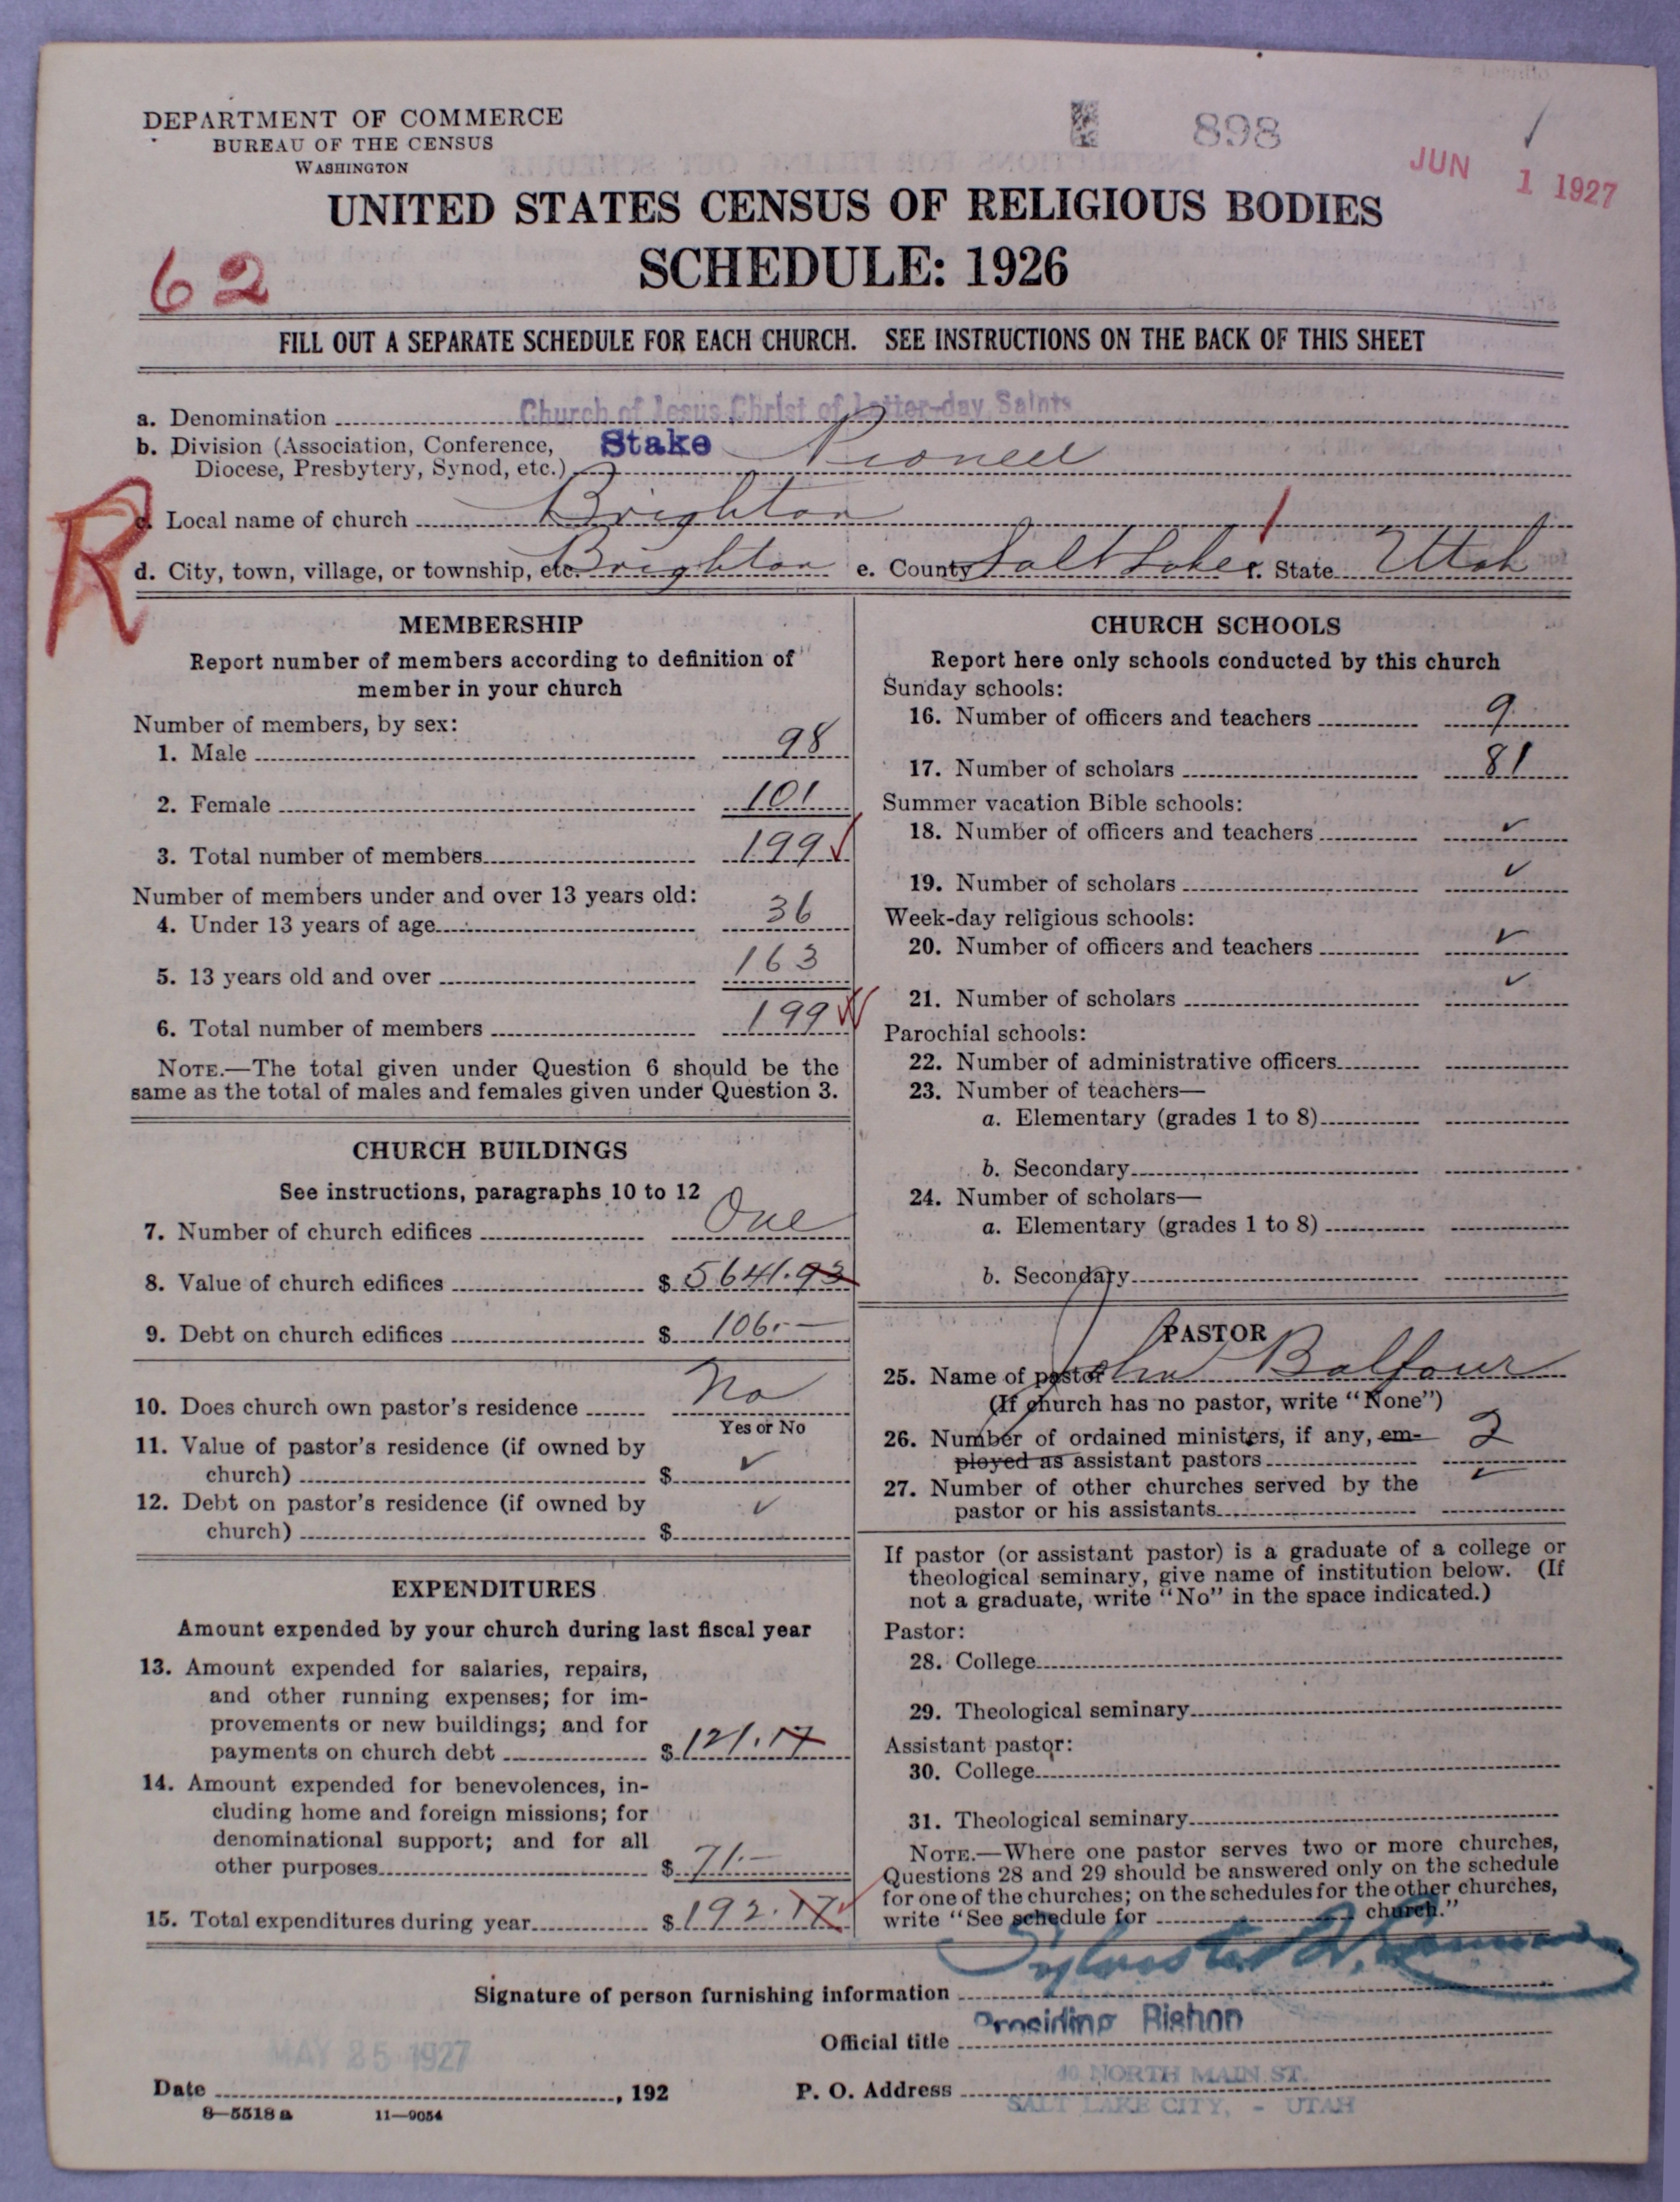 DEPARTMENT OF COMMERCE
BUREAU OF THE CENSUS
WASHINGTON
898
JUN 1 1927
UNITED STATES CENSUS OF RELIGIOUS BODIES
SCHEDULE: 1926
62
FILL OUT A SEPARATE SCHEDULE FOR EACH CHURCH. SEE INSTRUCTIONS ON THE BACK OF THIS SHEET
a. Denomination Church of Jesus Christ of Latter-day Saints
b. Division (Association, Conference, Stake Pioneer
Diocese, Presbytery, Synod, etc.)
R
c. Local name of church Brighton
d. City, town, village, or township, etc. Brighton e. County Salt Lake f. State Utah
MEMBERSHIP
Report number of members according to definition of
member in your church
Number of members, by sex:
1. Male 98
2. Female 101
3. Total number of members 199
Number of members under and over 13 years old:
4. Under 13 years of age 36
5. 13 years old and over 163
6. Total number of members 199
NOTE.—The total given under Question 6 should be the
same as the total of males and females given under Question 3.
CHURCH BUILDINGS
See instructions, paragraphs 10 to 12
7. Number of church edifices One
8. Value of church edifices $ 5641.93
9. Debt on church edifices $ 106.—
10. Does church own pastor's residence No
Yes or No
11. Value of pastor's residence (if owned by
church) $ ✓
12. Debt on pastor's residence (if owned by
church) $ ✓
EXPENDITURES
Amount expended by your church during last fiscal year
13. Amount expended for salaries, repairs,
and other running expenses; for im-
provements or new buildings; and for
payments on church debt $ 121.17
14. Amount expended for benevolences, in-
cluding home and foreign missions; for
denominational support; and for all
other purposes $ 71.—
15. Total expenditures during year $ 192.17
CHURCH SCHOOLS
Report here only schools conducted by this church
Sunday schools:
16. Number of officers and teachers 9
17. Number of scholars 81
Summer vacation Bible schools:
18. Number of officers and teachers ✓
19. Number of scholars ✓
Week-day religious schools:
20. Number of officers and teachers ✓
21. Number of scholars ✓
Parochial schools:
22. Number of administrative officers
23. Number of teachers—
a. Elementary (grades 1 to 8)
b. Secondary
24. Number of scholars—
a. Elementary (grades 1 to 8)
b. Secondary
PASTOR
25. Name of pastor John Balfour
(If church has no pastor, write "None")
26. Number of ordained ministers, if any, em-
ployed as assistant pastors 2
27. Number of other churches served by the
pastor or his assistants ✓
If pastor (or assistant pastor) is a graduate of a college or
theological seminary, give name of institution below. (If
not a graduate, write "No" in the space indicated.)
Pastor:
28. College
29. Theological seminary
Assistant pastor:
30. College
31. Theological seminary
NOTE.—Where one pastor serves two or more churches,
Questions 28 and 29 should be answered only on the schedule
for one of the churches; on the schedules for the other churches,
write "See schedule for church."
Signature of person furnishing information Sylvester Q. Cannon
Official title Presiding Bishop
MAY 25 1927
Date , 192
P. O. Address 40 NORTH MAIN ST.
SALT LAKE CITY, - UTAH
8—5518 a 11—9054